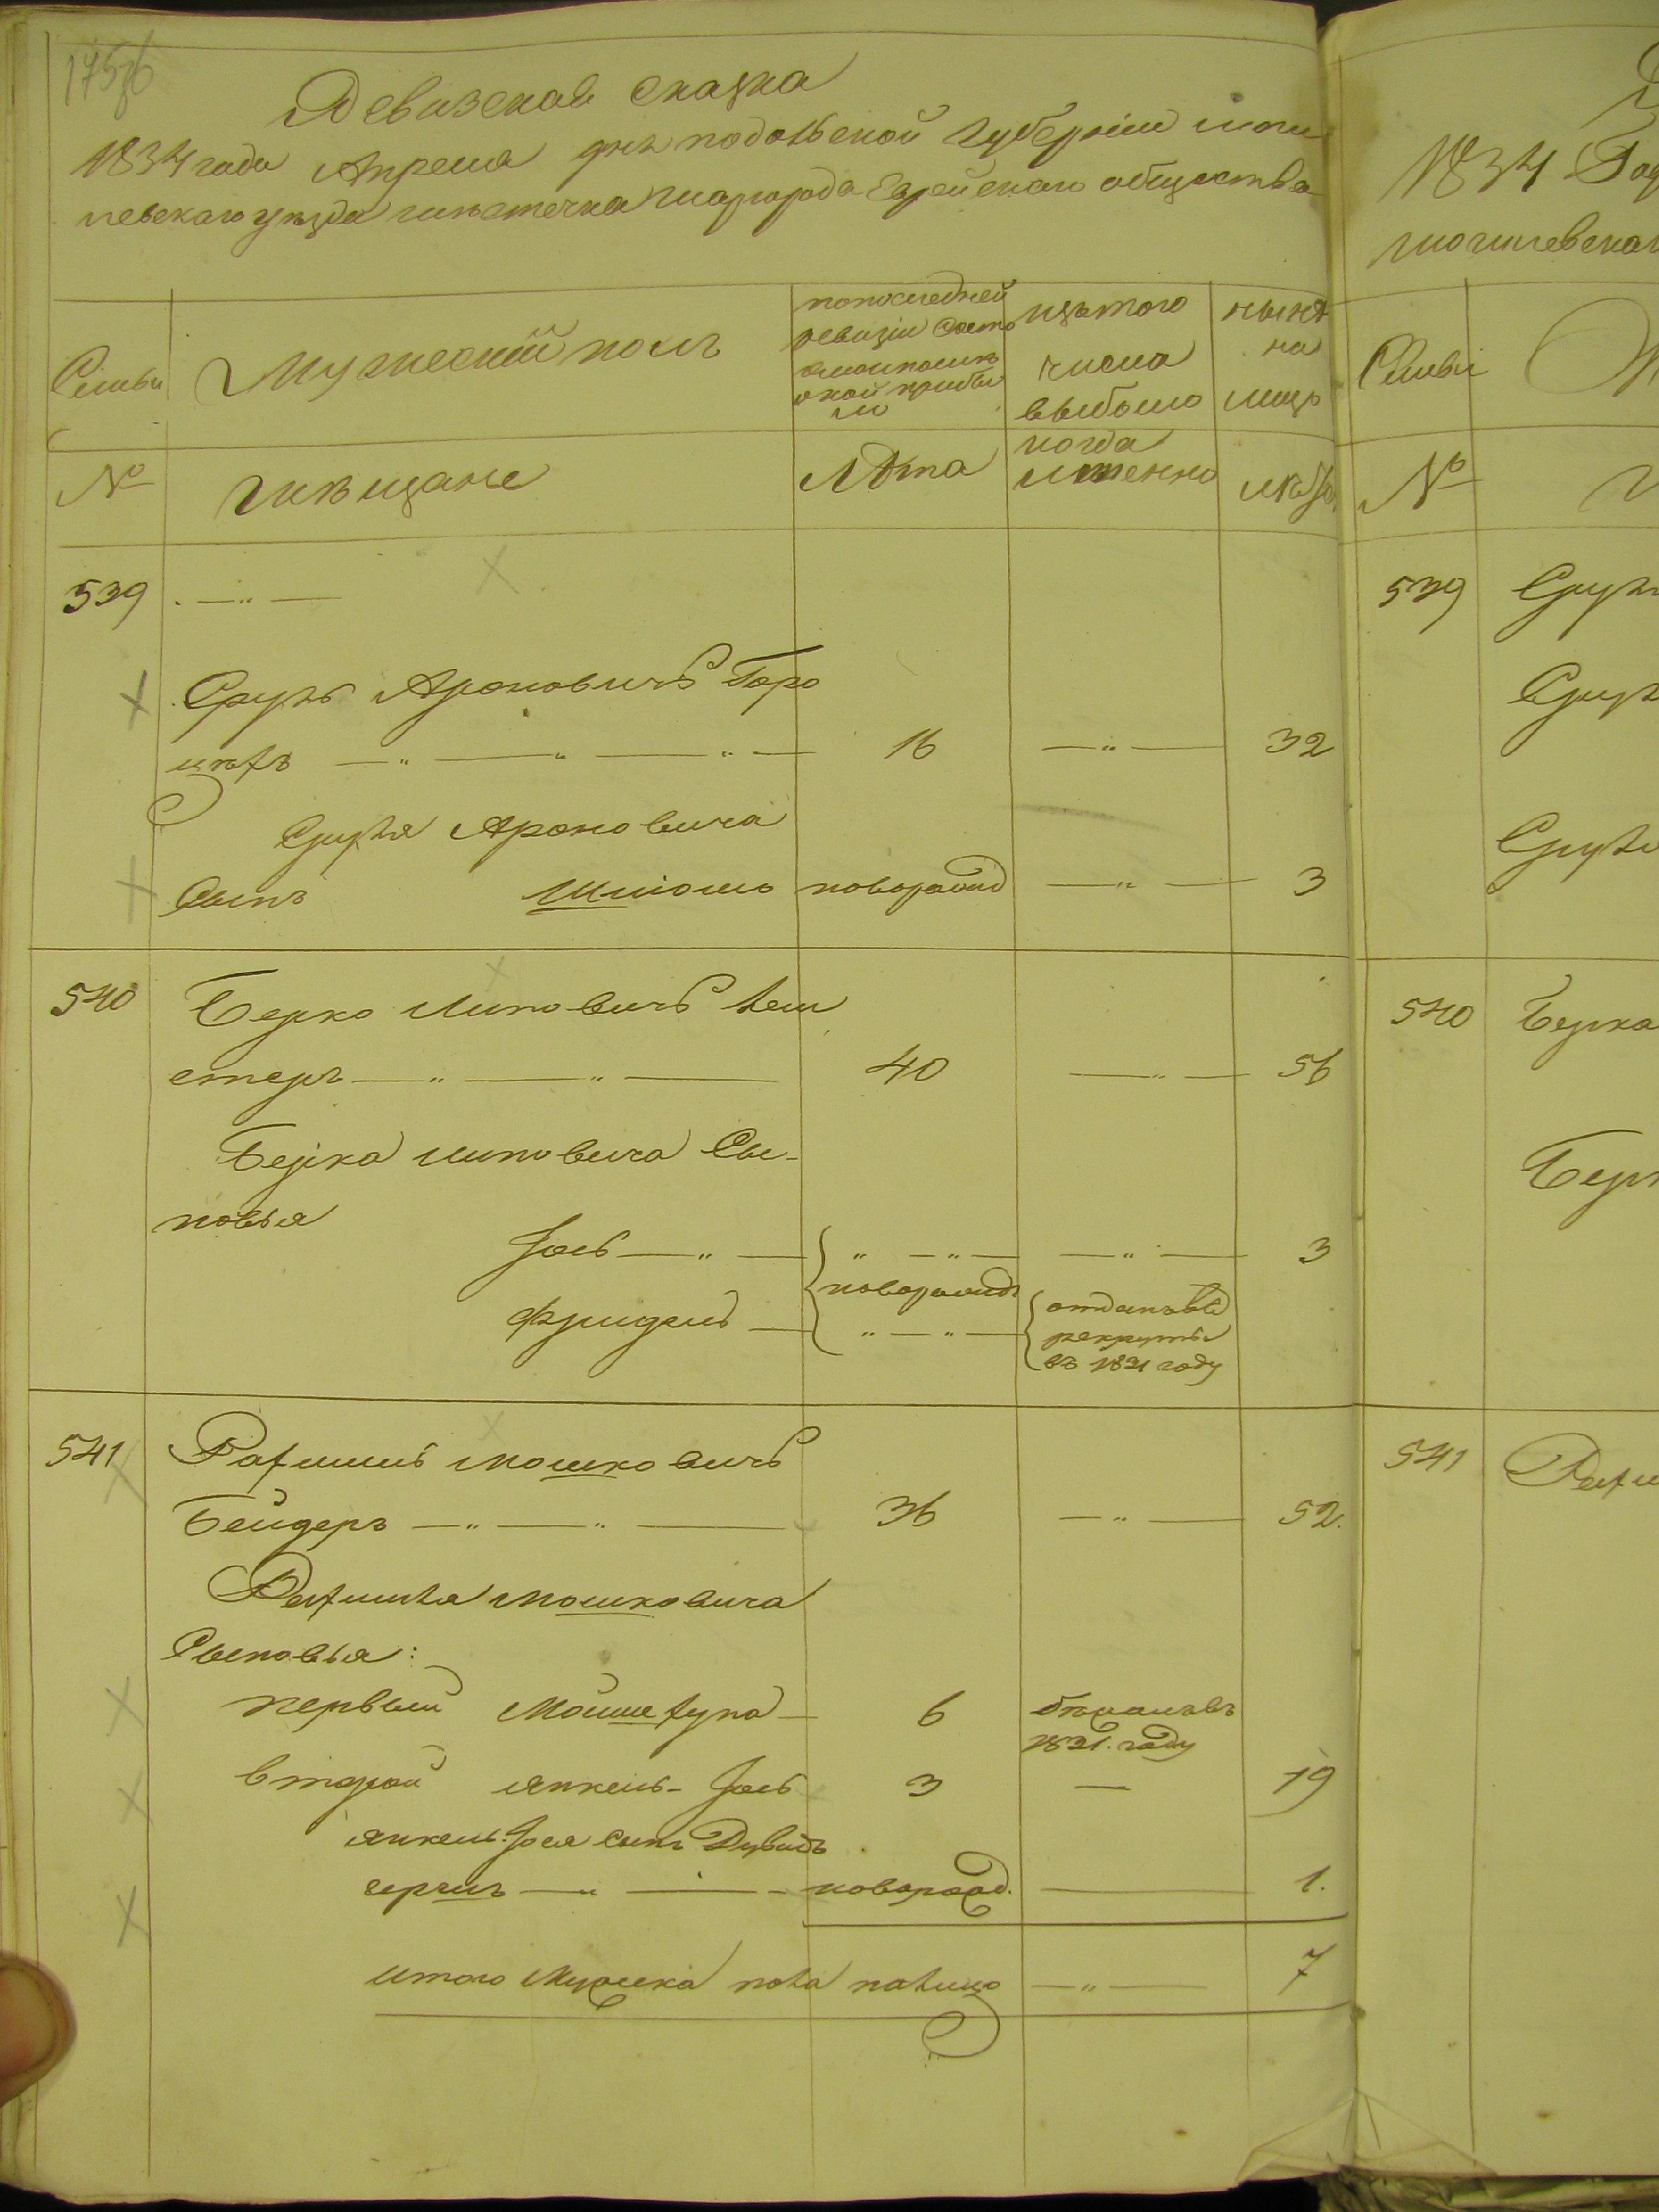 1756
Ревизская сказка
1834 года Апреля дня подольской Губернии моги
левскаго уезда местечка шаргорода Еврейскаго общества
Семьи
Мужеский полъ
попоследней
ревизии состо
яло
и после
оной прибы
ло
изътого
числа
выбыло
ныне
на
лицо
№
мещане
Лѣта
когда
именно
лѣта
539
Сруль Ароновичъ Горо
16
32
Сруля Ароновича
Сынъ Шлiома новорожд 3
540
Берко Липовичъ Зей
стеръ 40 56
Берка Липовича Сы-
новья
Iось 3
новорожд
Фридель
отданъ въ
рекруты
въ 1831 году
541
Рахмиль Мошковичъ
Бейдеръ 36 52.
Рахмиля Мошковича
Сыновья:
первый Мойше 6 бежалъ въ
1831. году
второй Янкель-Iось 3 19
Янкель Iося сынъ Дувидъ
гершъ новорожд. 1.
итого Мужеска пола налицо 7
1834 Год
могилевскаг
Семьи
№
539
Сруля
Сруля
Сруля
540
Берка
Берк
541
Рахм